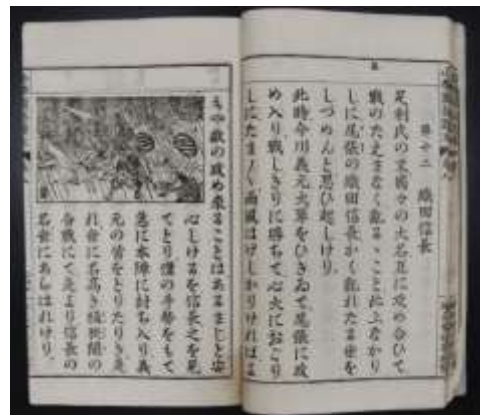 第十二　織田信長
足利氏の末國々の大名互に攻め合ひて
戰のたえまなく亂るゝこと此上なかり
しに尾張の織田信長かく亂れたる世を
しづめんと思ひ起しけり。
此時今川義元大軍をひきゐて尾張に攻
め入り戰しきりに勝ちて心大におごり
しにたま〱雨風はげしかりければよ
もや敵の攻め來ることはあるまじと安
心しけるを信長之を見
てとり僅の手勢をもて
急に本陣に討ち入り義
元の首をとりたりき是
れ世に名高き桶狹間の
合戰にて是より信長の
名世にあらはれけり。